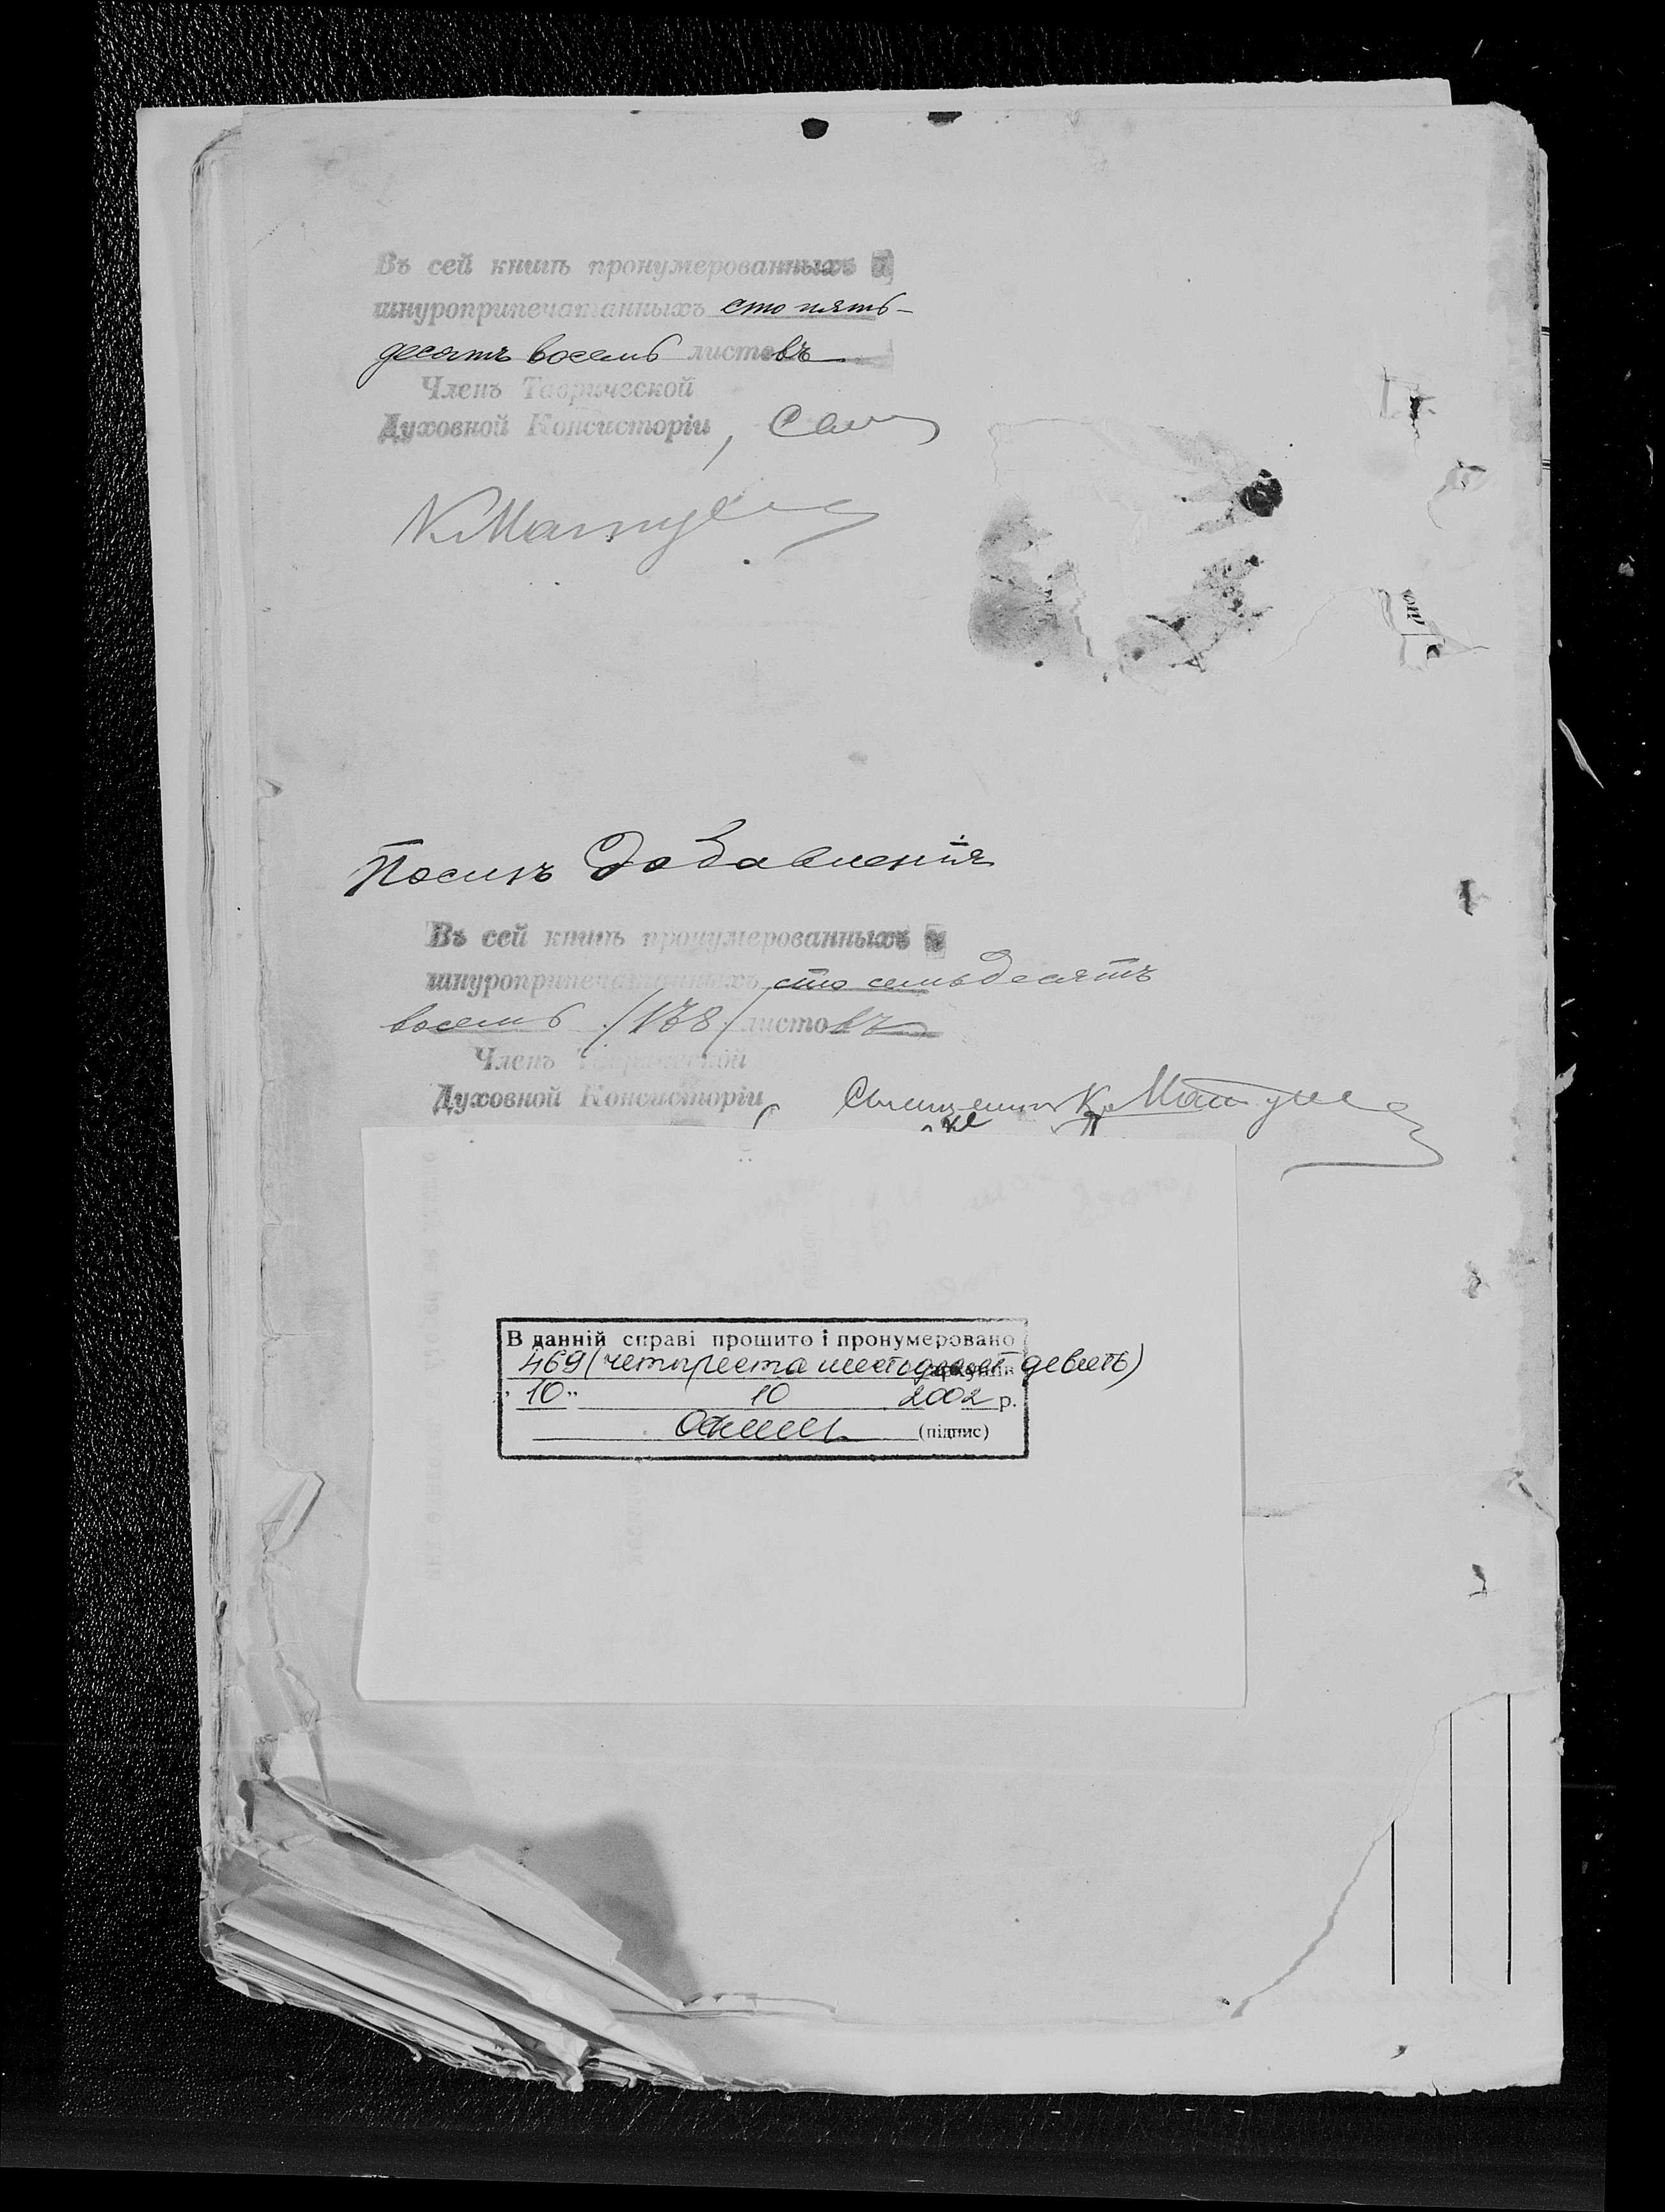 Въ сей книгѣ пронумерованныхъ и
шнуроприпечатанныхъ сто пять-
десятъ восемь листовъ
Членъ Таврической
Духовной Консисторіи, Свящ
К. Матуше
Послѣ добавленія
Въ сей книгѣ пронумерованныхъ и
шнуроприпечатанныхъ сто семьдесятъ
восемь /178/ листовъ
Членъ Таврической
Духовной Консисторіи, Священникъ К. Матуше
В данній справі прошито і пронумеровано
469 (четыреста шестьдесят девять) аркушів
"10" 10 2002 р.
(підпис)